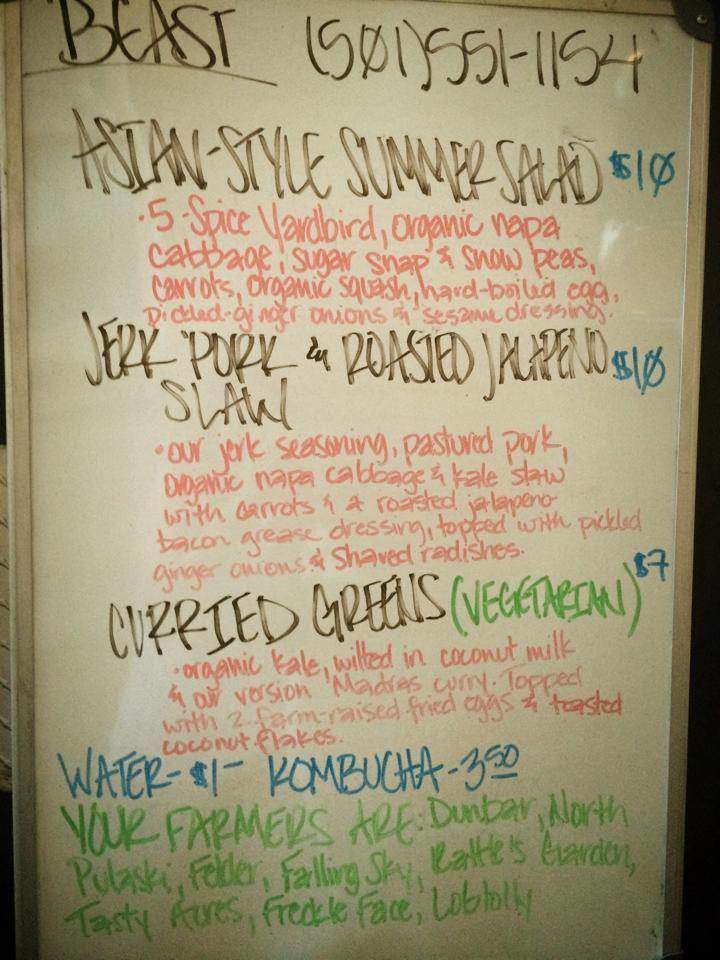 BEAST (501)551-1154
ASIAN-STYLE SUMMER SALAD $10
•5-Spice Yardbird, organic napa
cabbage, sugar snap & snow peas,
carrots, organic squash, hard-boiled egg,
pickled-ginger onions & sesame dressing.
JERK PORK & ROASTED JALAPENO $10
SLAW
•our jerk seasoning, pastured pork,
organic napa cabbage & kale slaw
with carrots & a roasted jalapeno
bacon grease dressing, topped with pickled
ginger onions & shaved radishes.
CURRIED GREENS (VEGETARIAN) $7
•organic kale, wilted in coconut milk
& our version Madras curry. Topped
with 2 farm-raised fried eggs & toasted
coconut flakes.
WATER- $1- KOMBUCHA - 3.50
YOUR FARMERS ARE: Dunbar, North
Pulaski, Felder, Falling Sky, Rattle's Garden,
Tasty Acres, Freckle Face, Loblolly